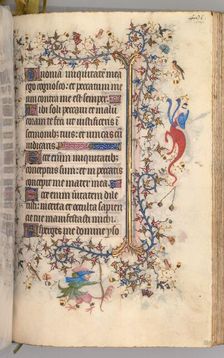 Quoniam iniquitatem mea
ego cognosco: et peccatum me
um contra me est semper
Tibi soli peccavi et malu
coram te feci ut iustificeris i
sermonibus tuis: et vincas cu
iudicaris
Ecce enim iniquitatib
conceptus sum: et in peccatis
concepit me mater mea
Ecce enim veritatem dile
xisti: incerta et occulta sapien
tie tue manifestasti michi
Asperges me domine yso